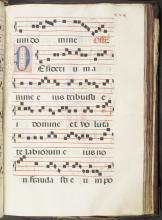 uun do mine Offr.
D Esideri u m a
nim e e ius tribuisti e
i domine et vo lunta
te labiorum e ius no
n frauda sti e u m po